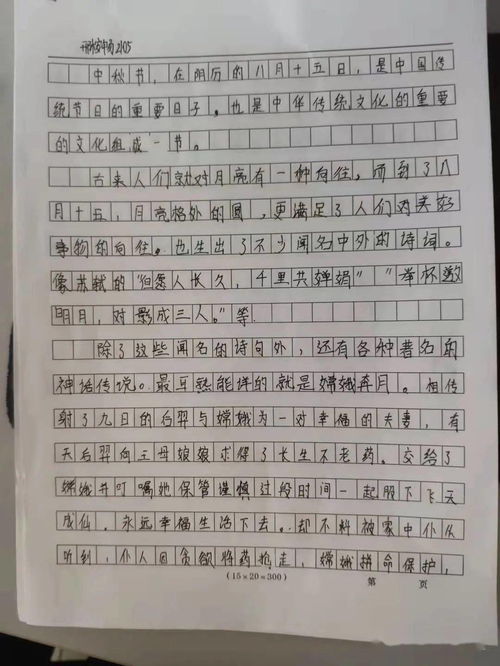 2105
中秋节，在阴历的八月十五日，是中国传
统节日的重要日子。也是中华传统文化的重要
的文化组成一节。
古来人们就对月亮有一种向往。而到了八
月十五，月亮格外的圆，更满足了人们对美好
事物的向往。也生出了不少闻名中外的诗词。
像苏轼的"但愿人长久，千里共婵娟""举杯邀
明月，对影成三人。"等
除了这些闻名的诗句外，还有各种著名的
神话传说。最耳熟能详的就是嫦娥奔月。相传
射了九日的后羿与嫦娥为一对幸福的夫妻，有
天后羿向王母娘娘求得了长生不老药。交给了
嫦娥并叮嘱她保管谨慎过段时间一起服下飞天
成仙，永远幸福生活下去。却不料被家中仆从
听到，仆人因贪欲将药抢走，嫦娥拼命保护，
(15×20=300) 第 页